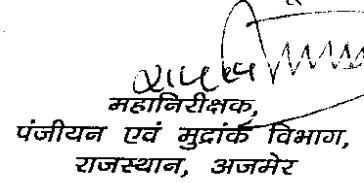 महानिरीक्षक,
पंजीयन एवं मुद्रांक विभाग,
राजस्थान, अजमेर